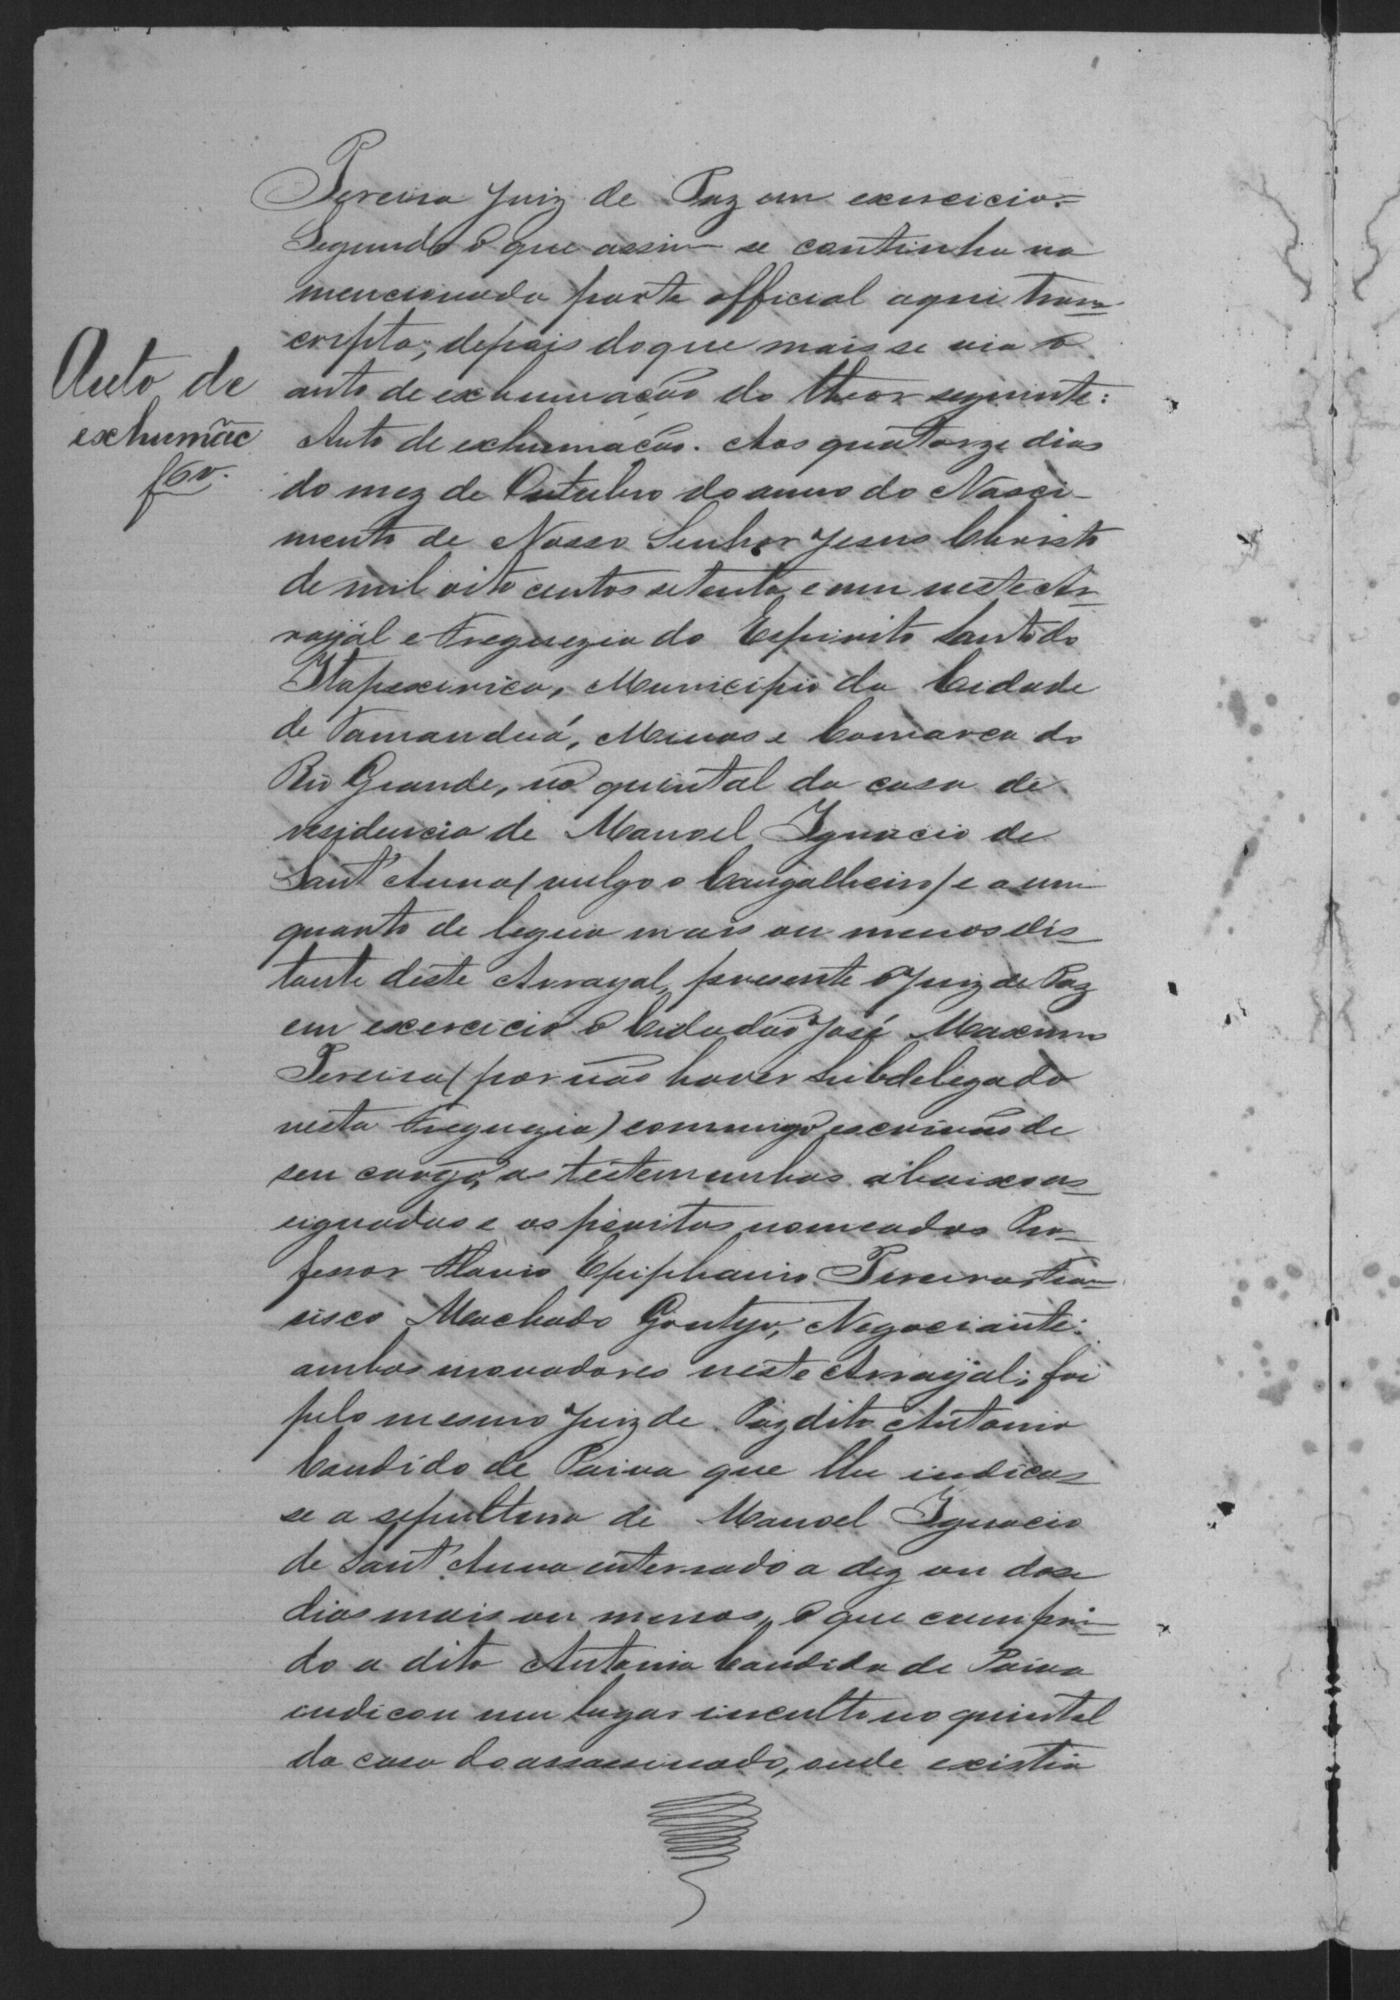 Pereira Juiz de Paz em exercicio.=
Segundo o que assim se continha na
mencionada parte official aqui trans=
cripta; depois do que mais se via o
auto de exhumação do theor seguinte:
Auto de
exhumãc
f 6 v.
Auto de exhumação. Aos quatorze dias
do mez de Outubro do anno do Nasci-
mento de Nosso Senhor Jesus Christo
de mil oito centos setenta e um neste Ar=
rayal e Freguezia do Espirito Santo do
Itapecerica, Municipio da Cidade
de Tamanduá, Minas e Comarca do
Rio Grande, no quintal da casa de
residencia de Manoel Ignacio de
Sant'Anna (vulgo o Cangalheiro) e a um
quarto de legua mais ou menos dis=
tante deste Arrayal, presente o Juiz de Paz
em exercicio o Cidadão José Maximo
Pereira (por não haver Subdelegado
nesta Freguezia) commigo escrivão de
seu cargo, as testemunhas abaixo as=
signadas e os peritos nomeados Pro=
fessor Flavio Epiphanio Pereira e Fran=
cisco Machado Gontijo, Negociante:
ambos moradores neste Arrayal; foi
pelo mesmo Juiz de Paz dito Antonio
Candido de Paiva que lhe indicas=
se a sepultura de Manoel Ignacio
de Sant'Anna enterrado a dez ou dose
dias mais ou menos, o que cumpri=
do a dito Antonio Candido de Paiva
indicou um lugar inculto no quintal
da casa do assassinado, onde existia